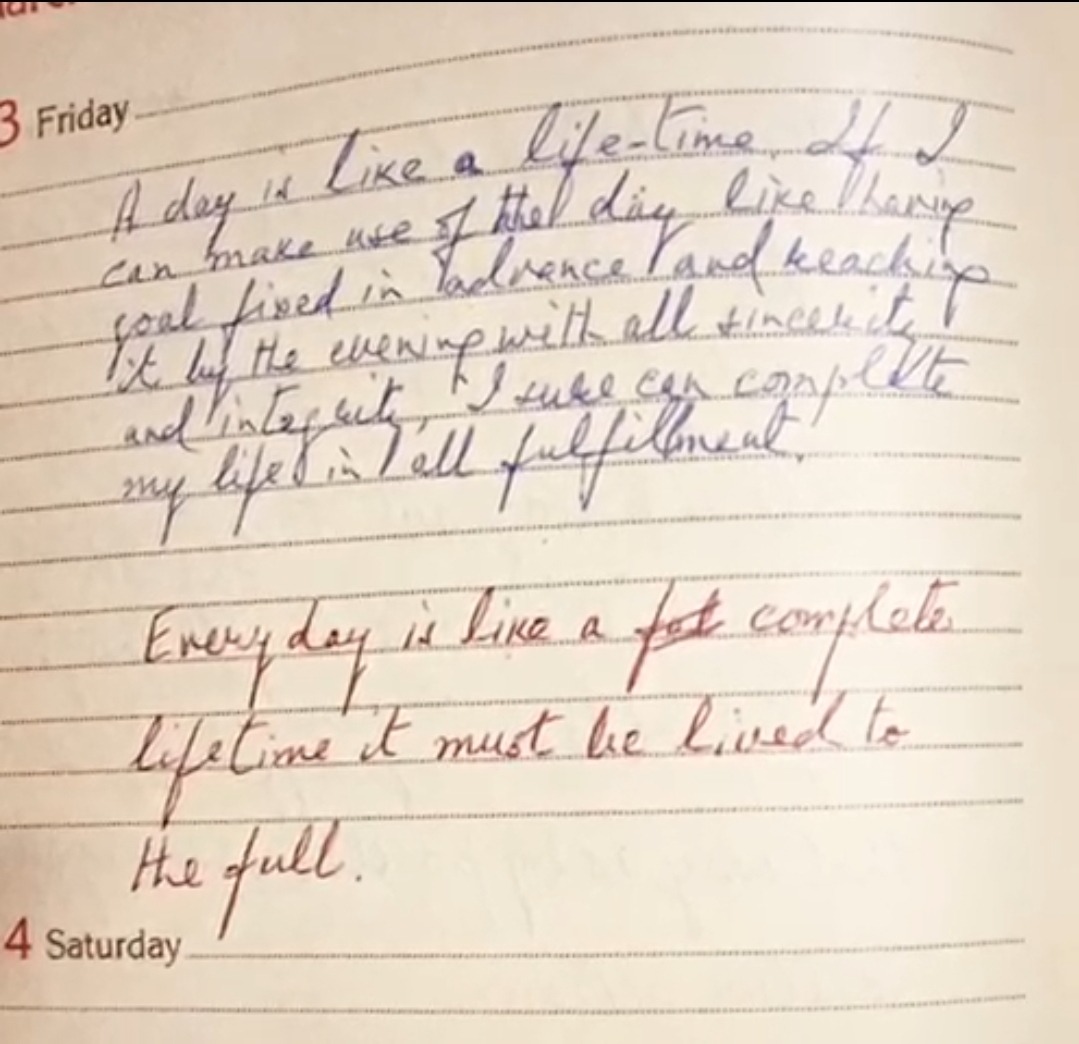 3 Friday
A day is like a life-time. If I
can make use of the day like having
goal fixed in advance and reaching
it by the evening with all sincerity
and integrity, I sure can complete
my life in all fulfillment.
Every day is like a complete
lifetime it must be lived to
the full.
4 Saturday